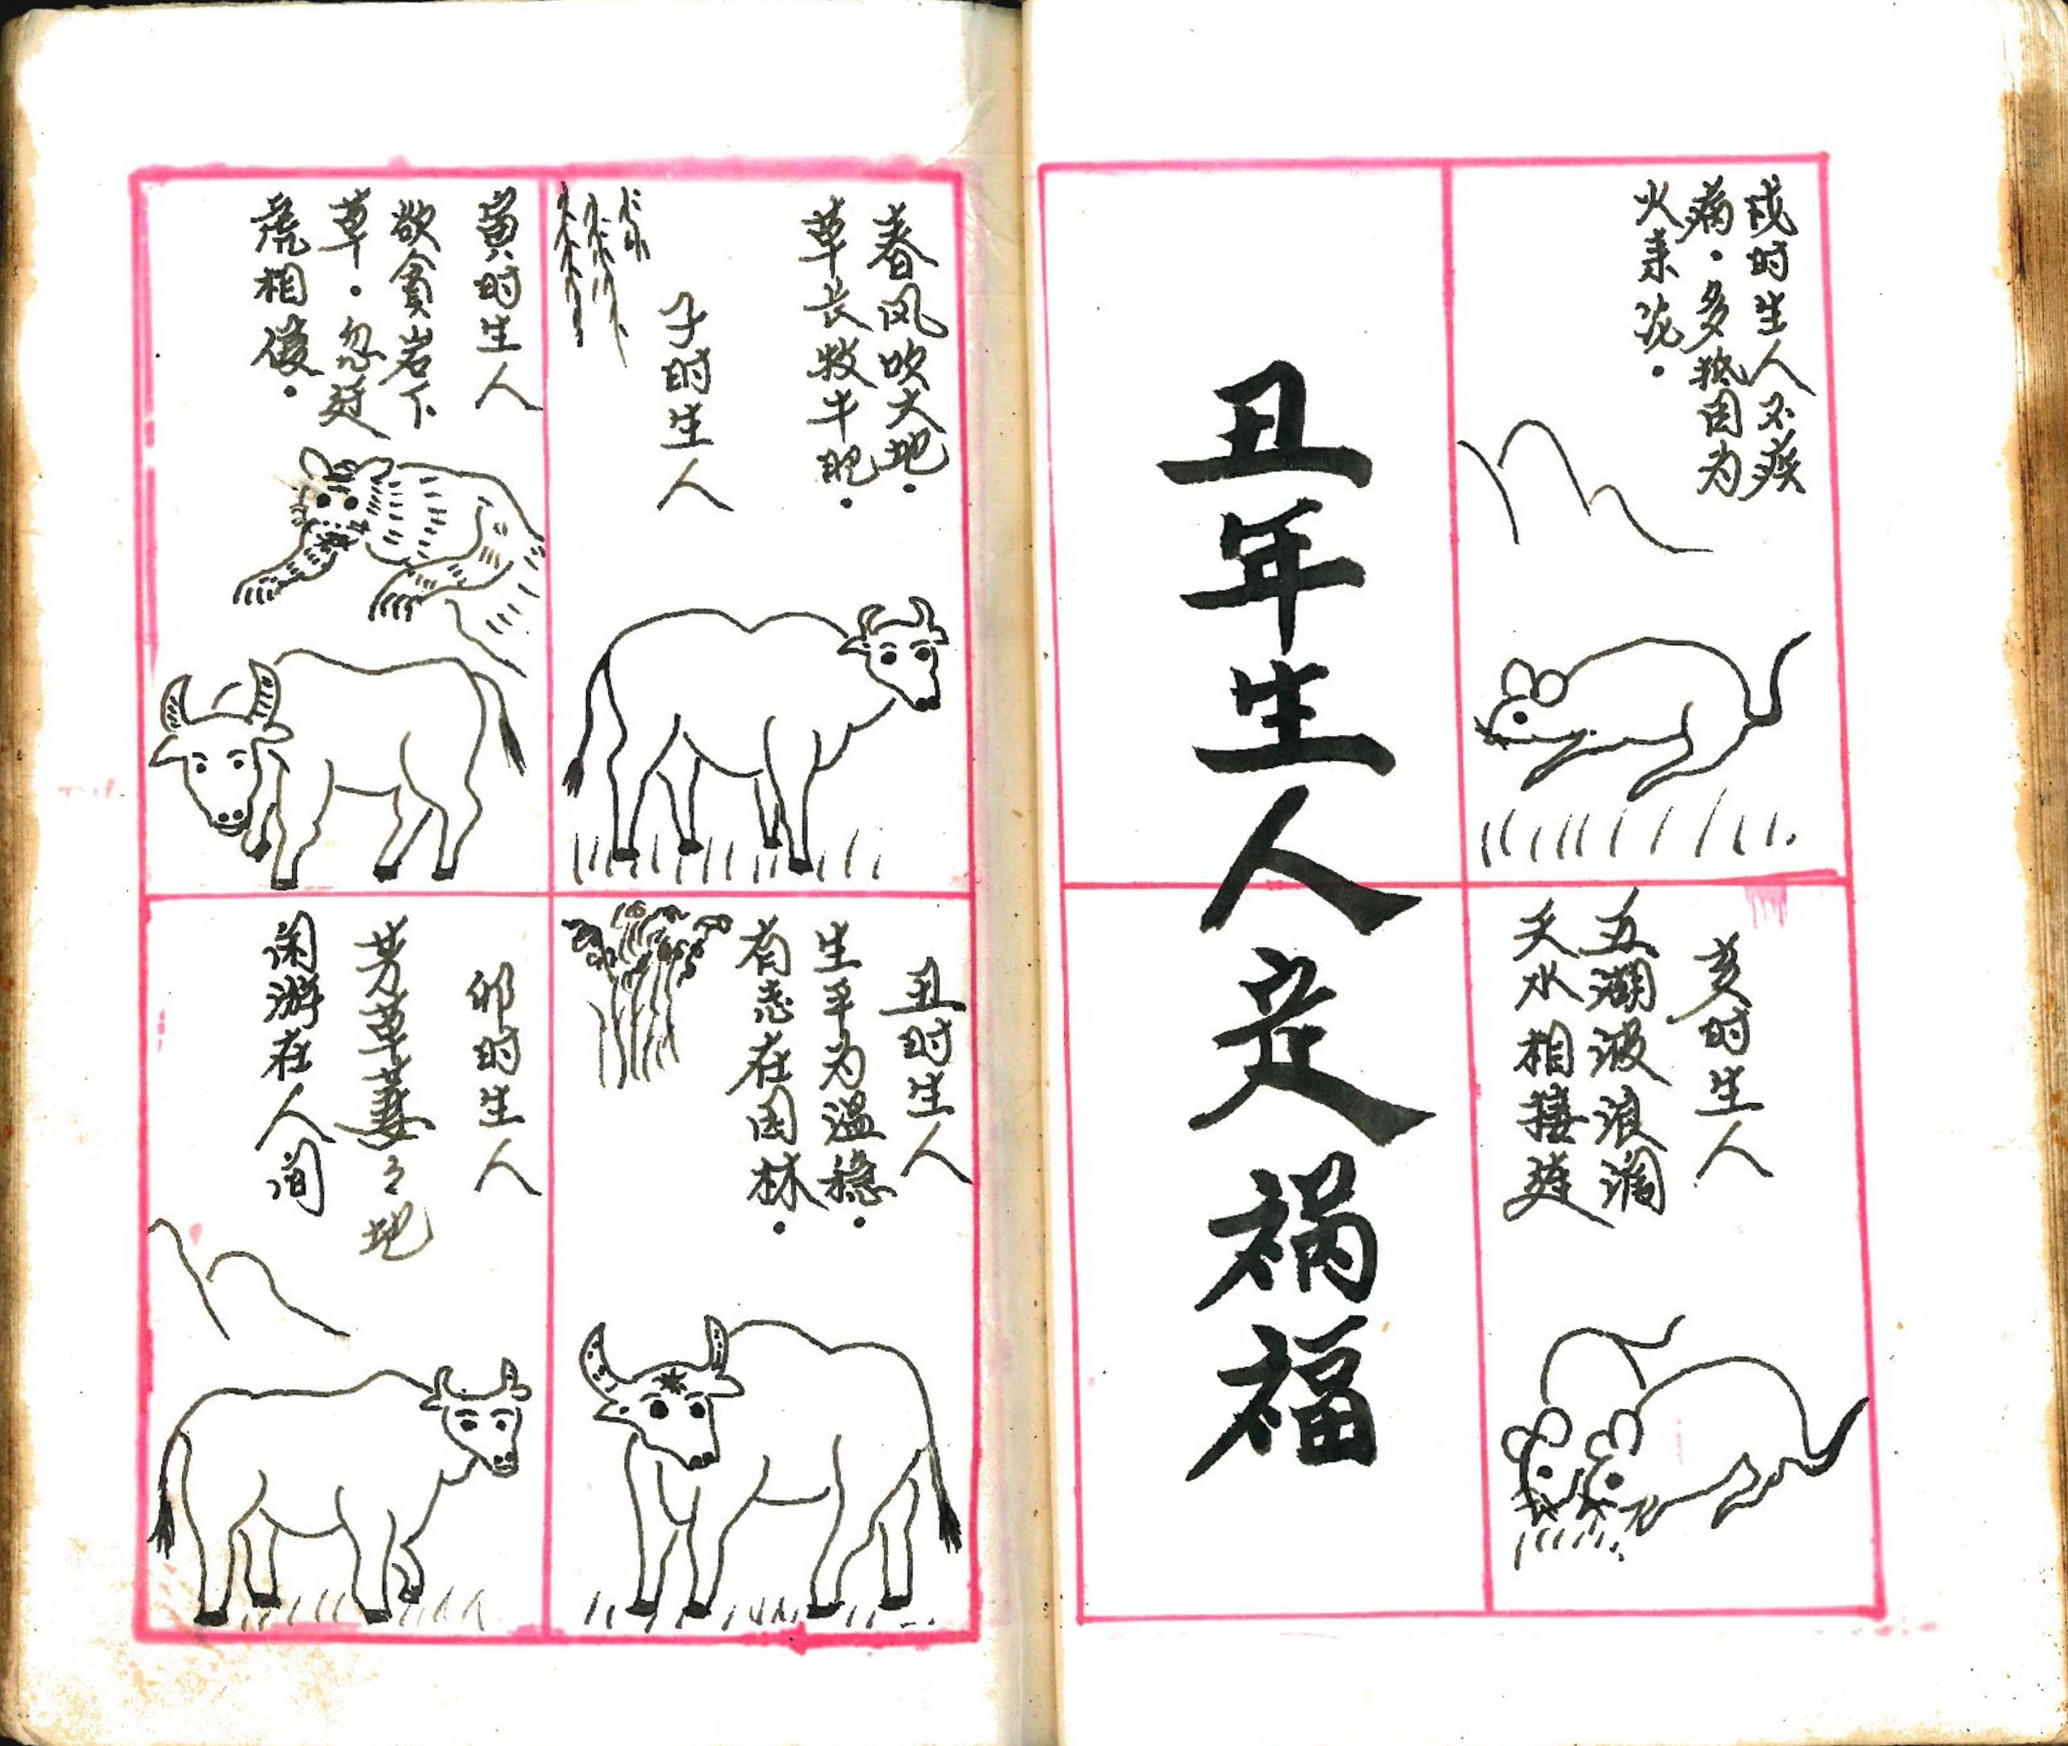 戌时生人不疾
病·多㧡因为
火来沈·
亥时生人
五湖波浪濶
天水相接连
丑年生人定祸福
春风吹大地·
草长牧牛肥·
子时生人
丑时生人
生平为温稳·
有志在园林·
寅时生人
欲貪岩下
草·忽逢
虎相侵·
卯时生人
芳草萋々地
闲游在人间